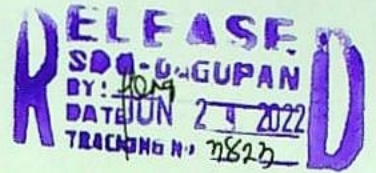 RELEASED
SDO-DAGUPAN
BY:
DATE JUN 2 2022
TRACKING N.